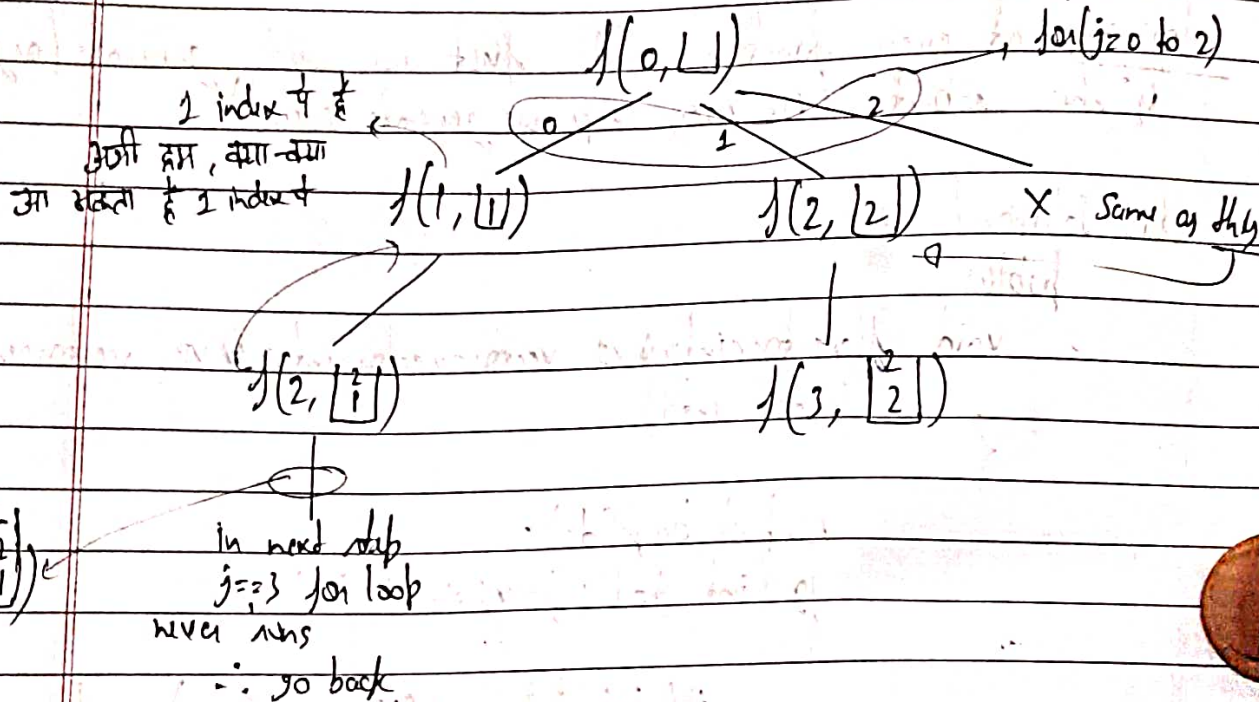 f(0, ⌊⌋)
for(j=0 to 2)
0
1
2
1 index पे है
अभी हम, क्या-क्या
आ सकता है 1 index पे
f(1, [1])
f(2, [2])
X Same as this
f(2, [2
1])
f(3, [2
2])
in next step
j==3 for loop
never runs
∴ go back